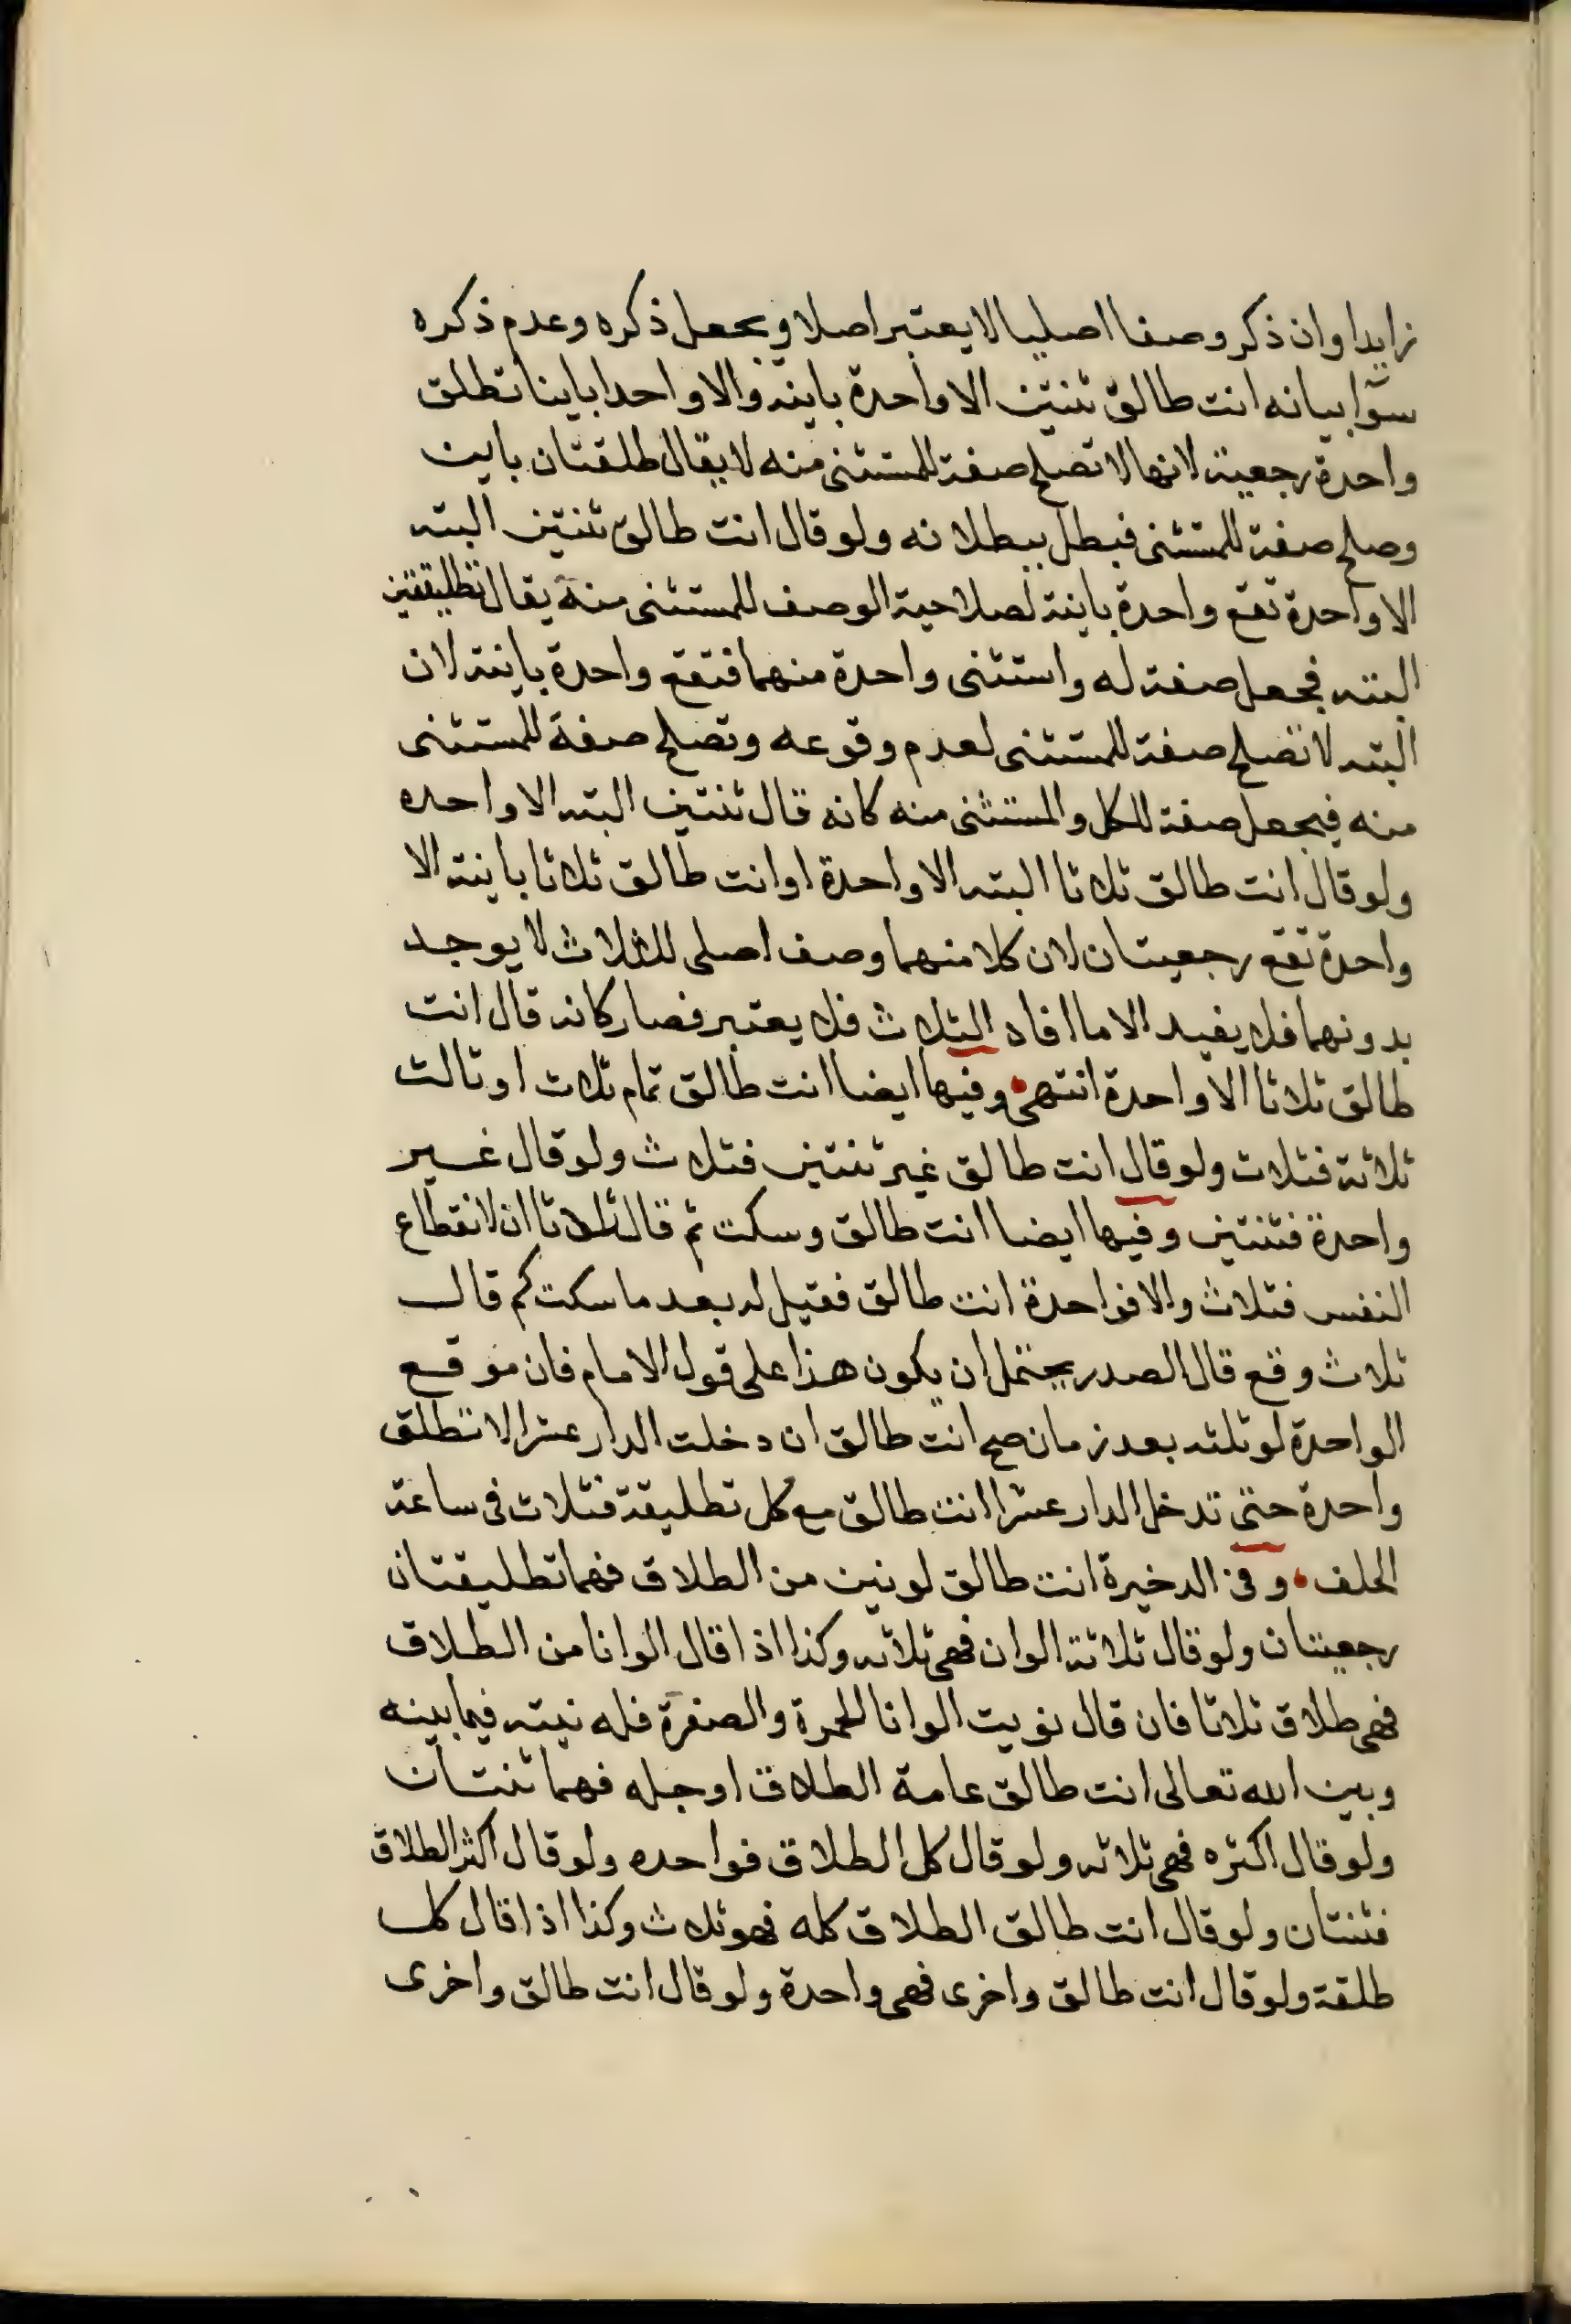 زايدا وان ذكر وصفا اصليا لا يعتبر اصلا ويجعل ذكره وعدم ذكره
سوآ بيانه انت طالق ثنتين الا واحدة باينة والا واحدا باينا تطلق
واحدة رجعية لانها لا تصلح صفة للمستثنى منه لا يقال طلقتان باين
وصلح صفة للمستثنى فبطل ببطلانه ولو قال انت طالق ثنتين البتة
الا واحدة تقع واحدة باينة لصلاحية الوصف للمستثنى منه يقال تطليقتين
البتة فجعل صفة له واستثنى واحدة منهما فتقع واحدة باينة لان
البتة لا تصلح صفة للمستثنى لعدم وقوعه وتصلح صفة للمستثنى
منه فيجعل صفة للكل والمستثنى منه كانه قال ثنتين البتة الا واحده
ولو قال انت طالق ثلاثا البتة الا واحدة او انت طالق ثلاثا باينة الا
واحدة تقع رجعيتان لان كلا منهما وصف اصلى للثلاث لا يوجد
بدونهما فلا يفيد الا ما افاد الثلاث فلا يعتبر فصار كانه قال انت
طالق ثلاثا الا واحدة انتهى وفيها ايضا انت طالق تمام ثلاث او ثالث
ثلاثة فثلاث ولو قال انت طالق غير ثنتين فثلاث ولو قال غير
واحدة فثنتين وفيها ايضا انت طالق وسكت ثم قال ثلاثا ان لانقطاع
النفس فثلاث والا فواحدة انت طالق فقيل له بعد ما سكت كم قال
ثلاث وقع قال الصدر يحتمل ان يكون هذا على قول الامام فان موقع
الواحدة لو ثلثه بعد زمان صح انت طالق ان دخلت الدار عشرا لا تطلق
واحدة حتى تدخل الدار عشرا انت طالق مع كل تطليقة فثلاث فى ساعة
الحلف وفى الدخيرة انت طالق لونين من الطلاق فهما تطليقتان
رجعيتان ولو قال ثلاثة الوان فهى ثلاثه وكذا اذا قال الوانا من الطلاق
فهى طلاق ثلاثا فان قال نويت الوانا للحمرة والصفرة فله نيته فيما بينه
وبين الله تعالى انت طالق عامة الطلاق او جله فهما ثنتان
ولو قال اكثره فهى ثلاثه ولو قال كل الطلاق فواحده ولو قال اكثر الطلاق
فثنتان ولو قال انت طالق الطلاق كله فهو ثلاث وكذا اذا قال كل
طلقة ولو قال انت طالق واخرى فهى واحدة ولو قال انت طالق واخرى